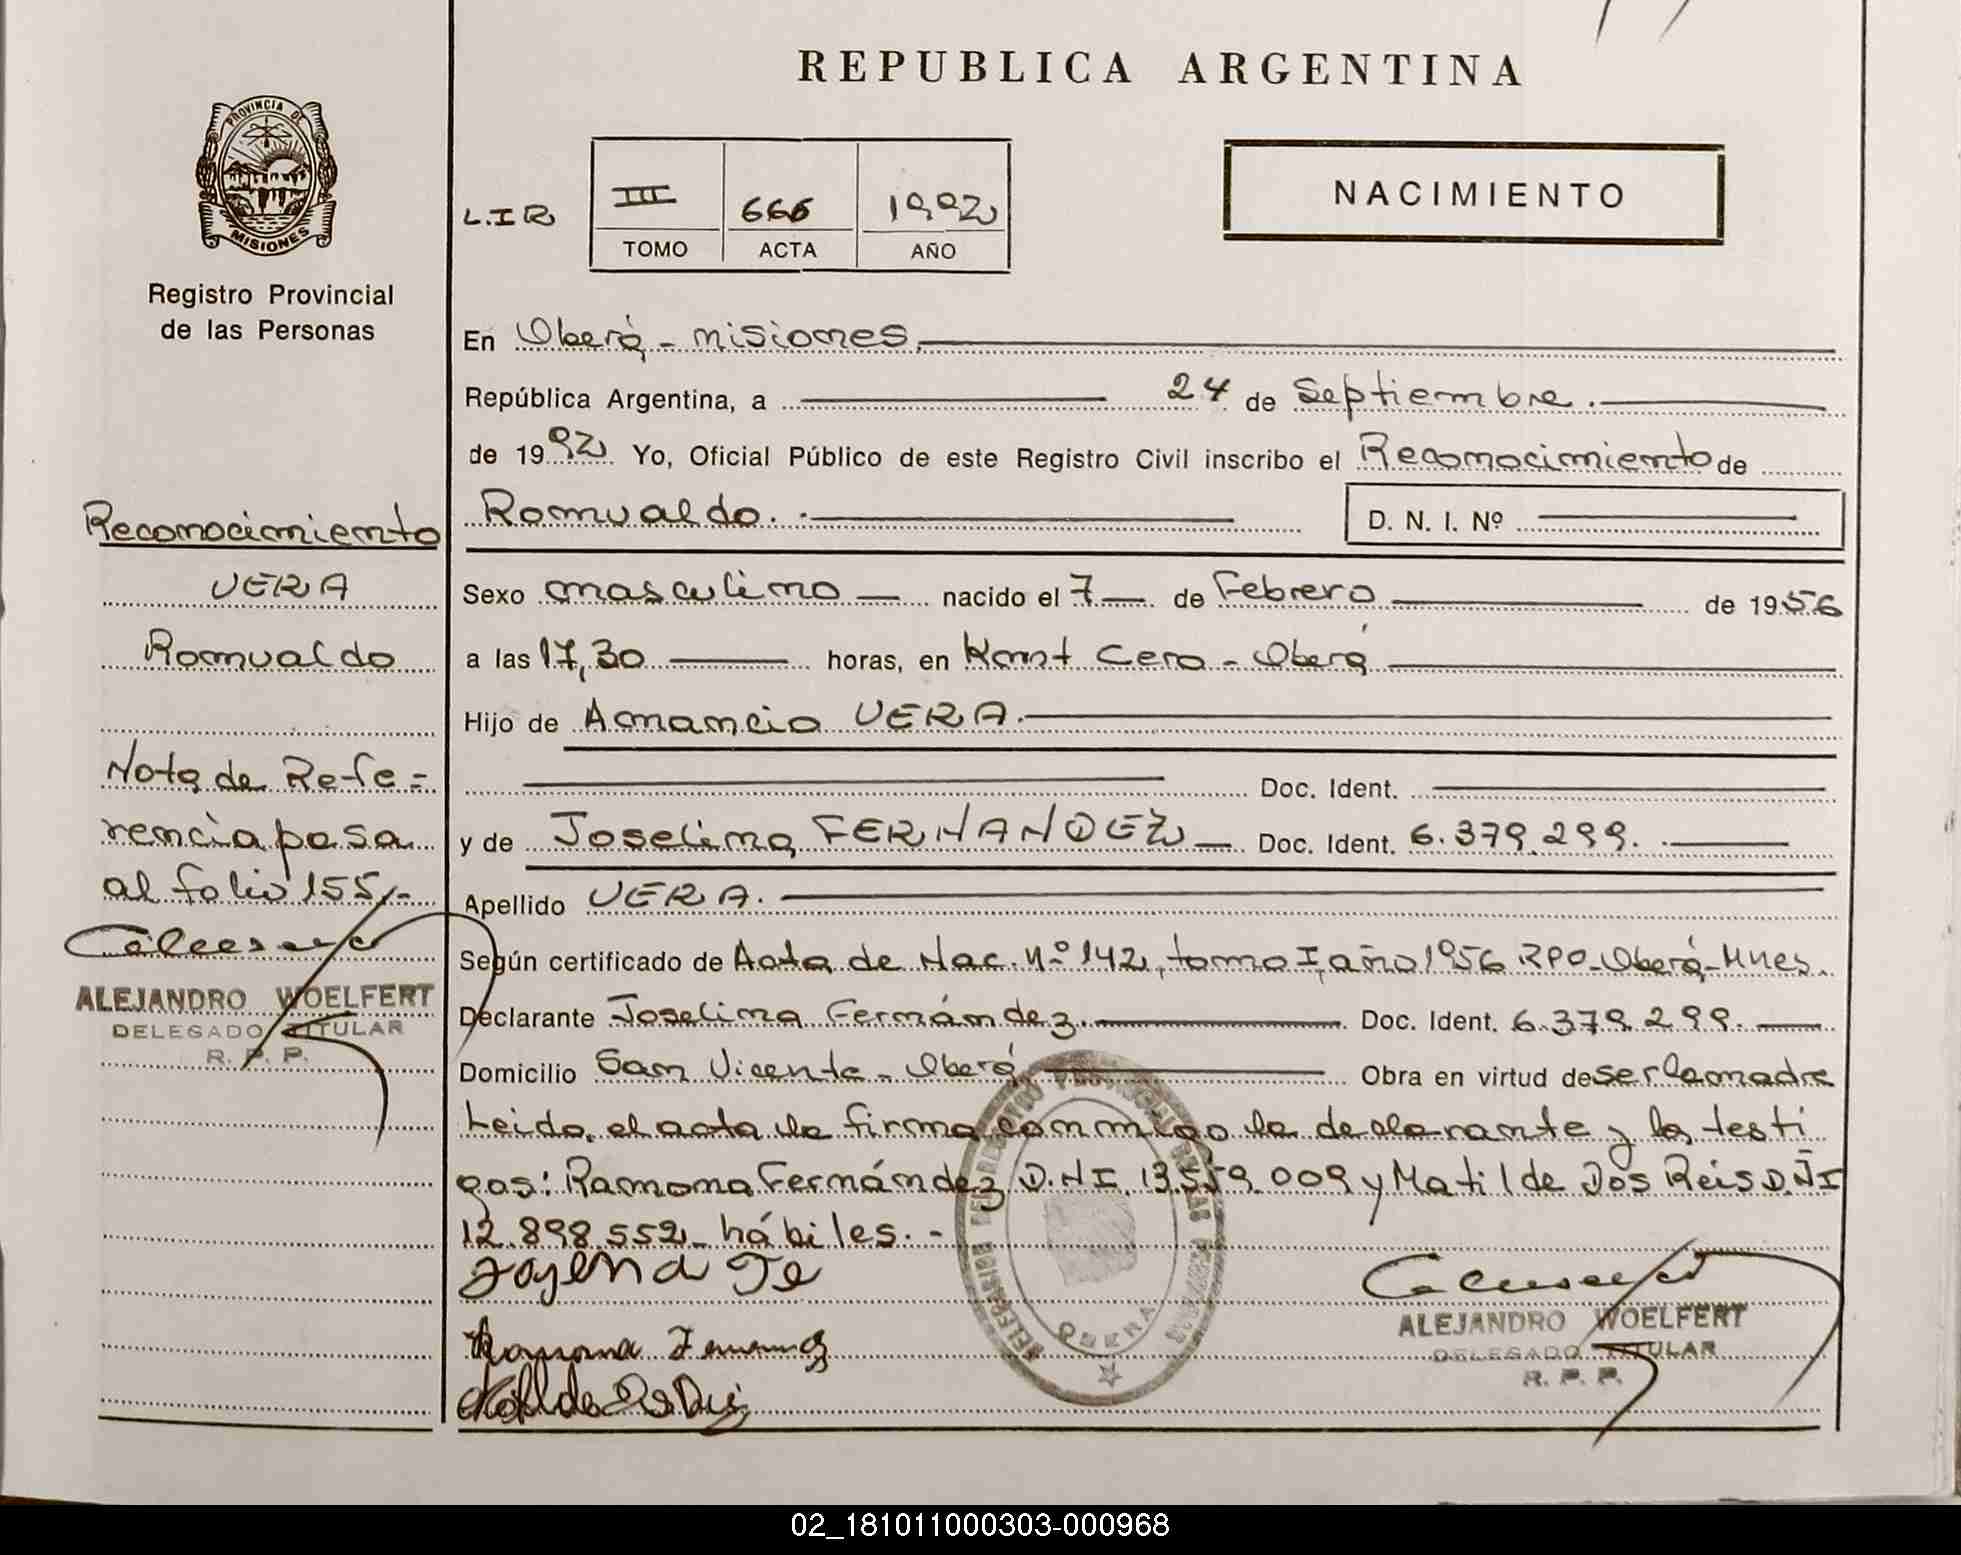 REPUBLICA ARGENTINA
PROVINCIA DE
MISIONES
Registro Provincial
de las Personas
L.I.R
III 666 1992
TOMO ACTA AÑO
NACIMIENTO
En Oberá - misiones.
República Argentina, a 24 de Septiembre.
de 1992 Yo, Oficial Público de este Registro Civil inscribo el Reconocimiento de
Romualdo. D. N. I. Nº
Sexo masculino nacido el 7 de Febrero de 1956
a las 17,30 horas, en Kmt Cero - Oberá
Hijo de Amancio VERA.
Doc. Ident.
y de Joselina FERNANDEZ Doc. Ident. 6.379.299.
Apellido VERA.
Según certificado de Acta de Nac. Nº 142, tomo I, año 1956 RPO - Oberá - Mnes.
Declarante Joselina Fernández. Doc. Ident. 6.379.299.
Domicilio San Vicente - Oberá Obra en virtud de ser la madre
Leida el acta la firma conmigo la declarante y los testi
gos: Ramona Fernández D.N.I. 13.559.009 y Matilde Dos Reis D.N.I
12.898.552 - hábiles. -
Reconocimiento
VERA
Romualdo
Nota de Refe =
rencia pasa
al folio 155.-
ALEJANDRO WOELFERT
DELEGADO TITULAR
R. P. P.
OBERA
ALEJANDRO WOELFERT
DELEGADO TITULAR
R. P. P.
Ramona
02_181011000303-000968